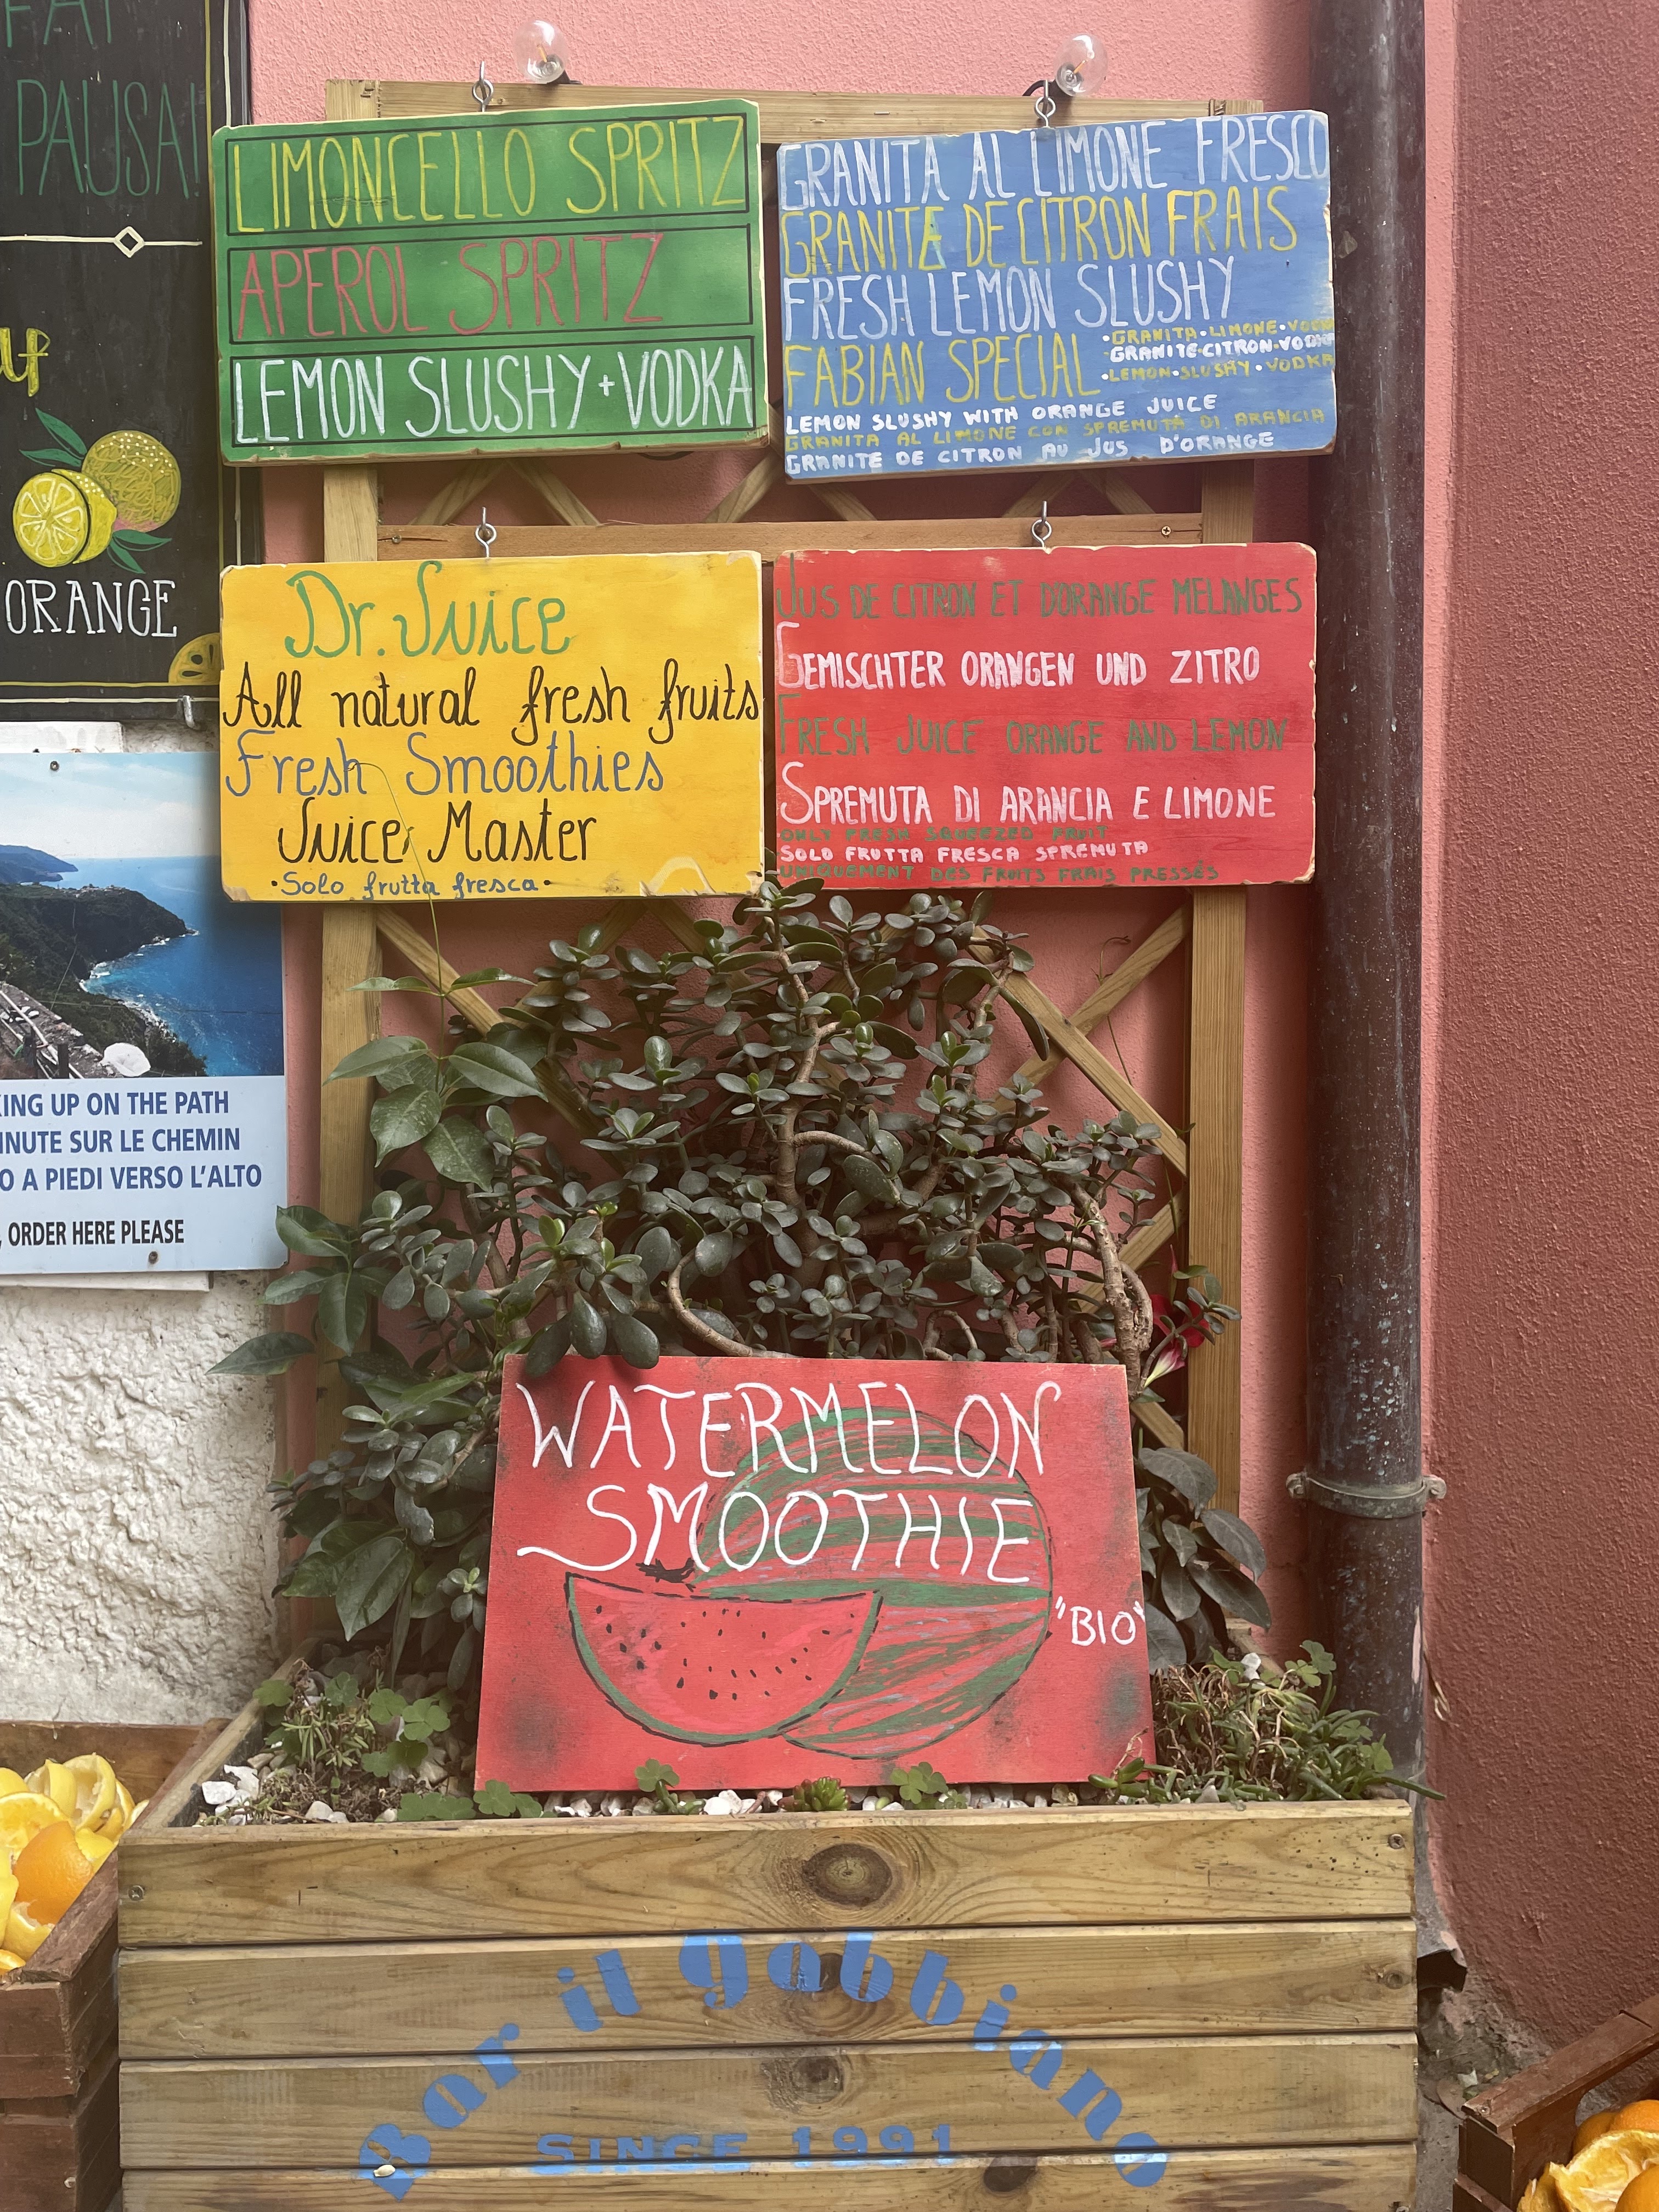 PAUSA!
ORANGE
LIMONCELLO SPRITZ
APEROL SPRITZ
LEMON SLUSHY + VODKA
GRANITA AL LIMONE FRESCO
GRANITE DE CITRON FRAIS
FRESH LEMON SLUSHY
FABIAN SPECIAL
•GRANITA•LIMONE•VODKA
•GRANITE•CITRON•VODKA
•LEMON•SLUSHY•VODKA
LEMON SLUSHY WITH ORANGE JUICE
GRANITA AL LIMONE CON SPREMUTA DI ARANCIA
GRANITE DE CITRON AU JUS D'ORANGE
Dr. Juice
All natural fresh fruits
Fresh Smoothies
Juice Master
•Solo frutta fresca•
JUS DE CITRON ET D'ORANGE MELANGES
GEMISCHTER ORANGEN UND ZITRO
FRESH JUICE ORANGE AND LEMON
SPREMUTA DI ARANCIA E LIMONE
ONLY FRESH SQUEEZED FRUIT
SOLO FRUTTA FRESCA SPREMUTA
UNIQUEMENT DES FRUITS FRAIS PRESSÉS
UP ON THE PATH
SUR LE CHEMIN
A PIEDI VERSO L'ALTO
, ORDER HERE PLEASE
WATERMELON
SMOOTHIE
"BIO"
Bar il gabbiano
SINCE 1991